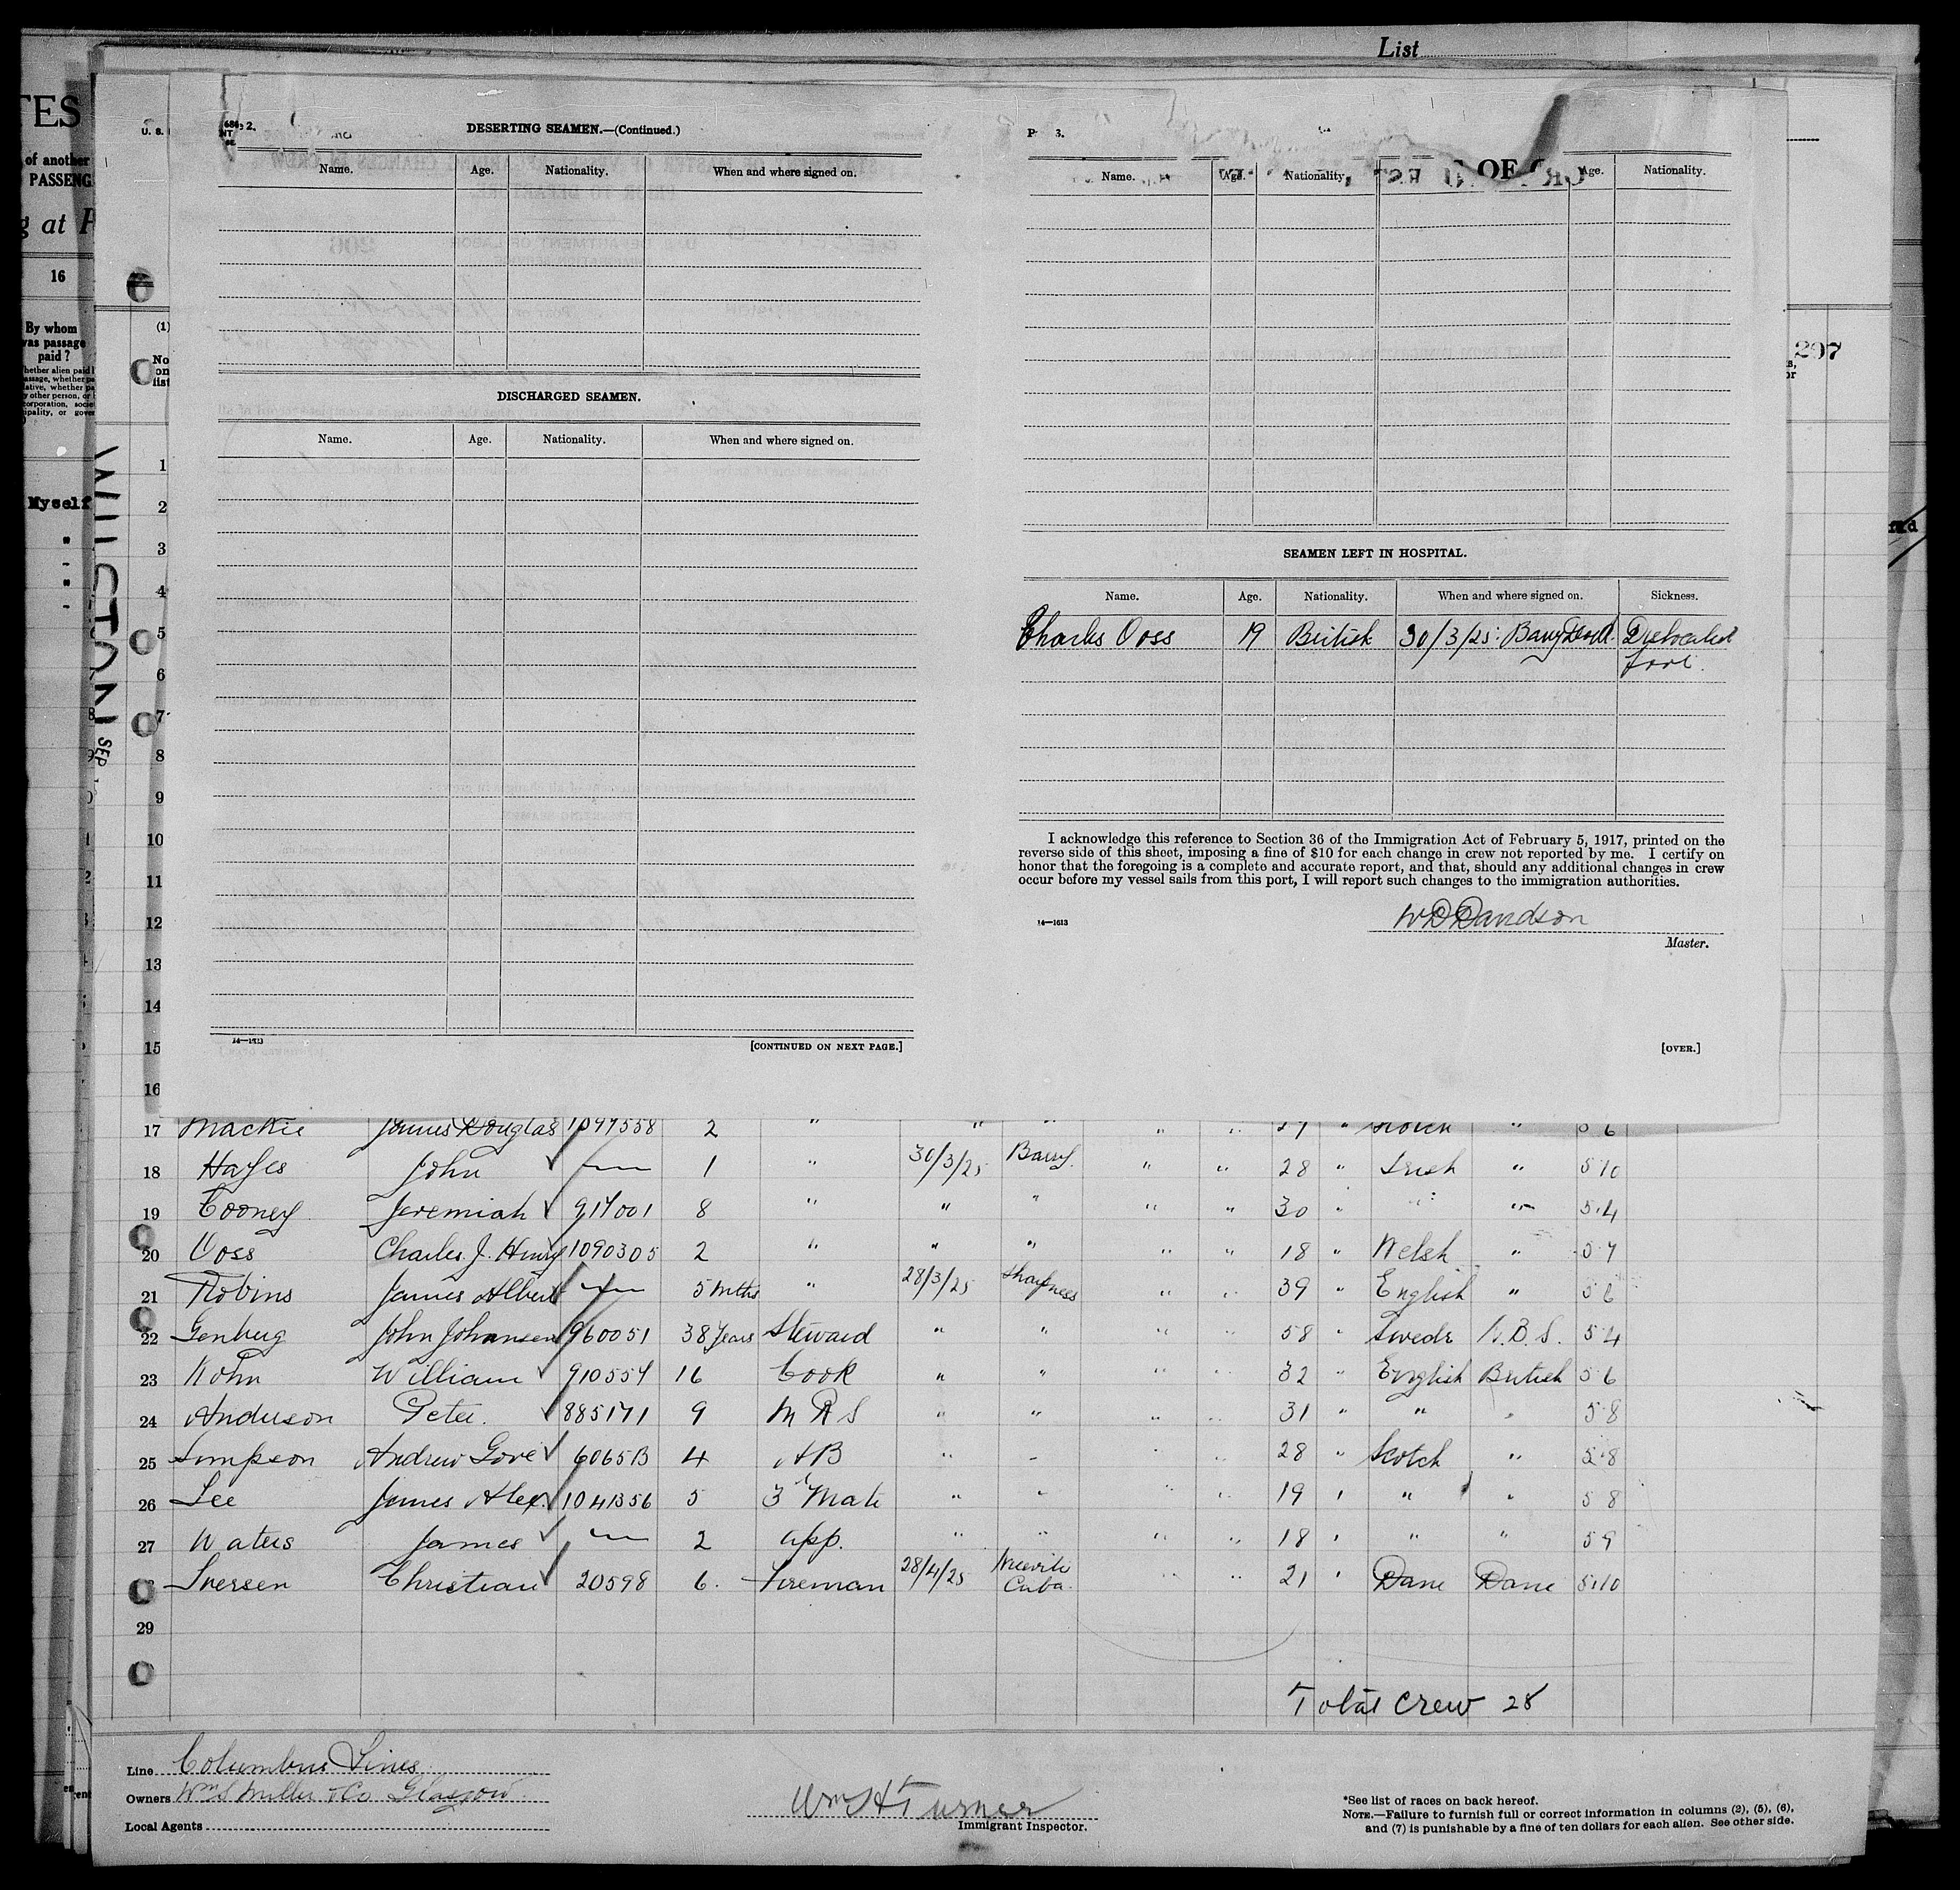 List
TES
of another
PASSENG
g at
16
By whom
was passage
paid?
Myself
WILLSTON SEP
U. S.
(1)
No
on
list
297
DESERTING SEAMEN.—(Continued.)
Name. Age. Nationality. When and where signed on.
DISCHARGED SEAMEN.
Name. Age. Nationality. When and where signed on.
14—1613
[CONTINUED ON NEXT PAGE.]
Name. Age. Nationality. OF Age. Nationality.
SEAMEN LEFT IN HOSPITAL.
Name. Age. Nationality. When and where signed on. Sickness.
Charles Voss 19 British 30/3/25: Barry Dislocated
foot.
I acknowledge this reference to Section 36 of the Immigration Act of February 5, 1917, printed on the
reverse side of this sheet, imposing a fine of $10 for each change in crew not reported by me. I certify on
honor that the foregoing is a complete and accurate report, and that, should any additional changes in crew
occur before my vessel sails from this port, I will report such changes to the immigration authorities.
14—1613
Master.
[OVER.]
1
2
3
4
5
6
7
8
9
10
11
12
13
14
15
16
17 Mackie James Douglas 1097558 2 " " " " " " Scotch " 5 6
18 Hayes John 1 " 30/3/25 Barry. " " 28 " Irish " 5 10
19 Cooney Jeremiah 917001 8 " " " " " 30 " " " 5.4
20 Voss Charles J. Henry 1090305 2 " " " " " 18 " Welsh " 5 7
21 Robins James Albert 5 mths " 28/3/25 Sharpness " " 39 " English " 5 6
22 Genberg John Johansen 960051 38 years Steward " " " " 58 " Swede N.B.S. 5 4
23 Kohn William 910554 16 Cook " " " " 32 " English British 5 6
24 Anderson Peter. 885171 9 M R S " " " " 31 " " " 5 8
25 Simpson Andrew Gove 6065B 4 AB " " " " 28 " Scotch " 5.8
26 Lee James Alex. 5 3rd Mate " " 19 " " " 5 8
27 Waters James 2 app. " " " " 18 " " " 5 9
Iversen Christian 20598 6. Fireman 28/4/25 Cuba. " " 21 " Dane Dane 5.10
29
Total Crew 28
Line Columbus Lines
Owners Wm S Miller & Co Glasgow
Local Agents
Wm H Turner
Immigrant Inspector.
*See list of races on back hereof.
NOTE.—Failure to furnish full or correct information in columns (2), (5), (6),
and (7) is punishable by a fine of ten dollars for each alien. See other side.